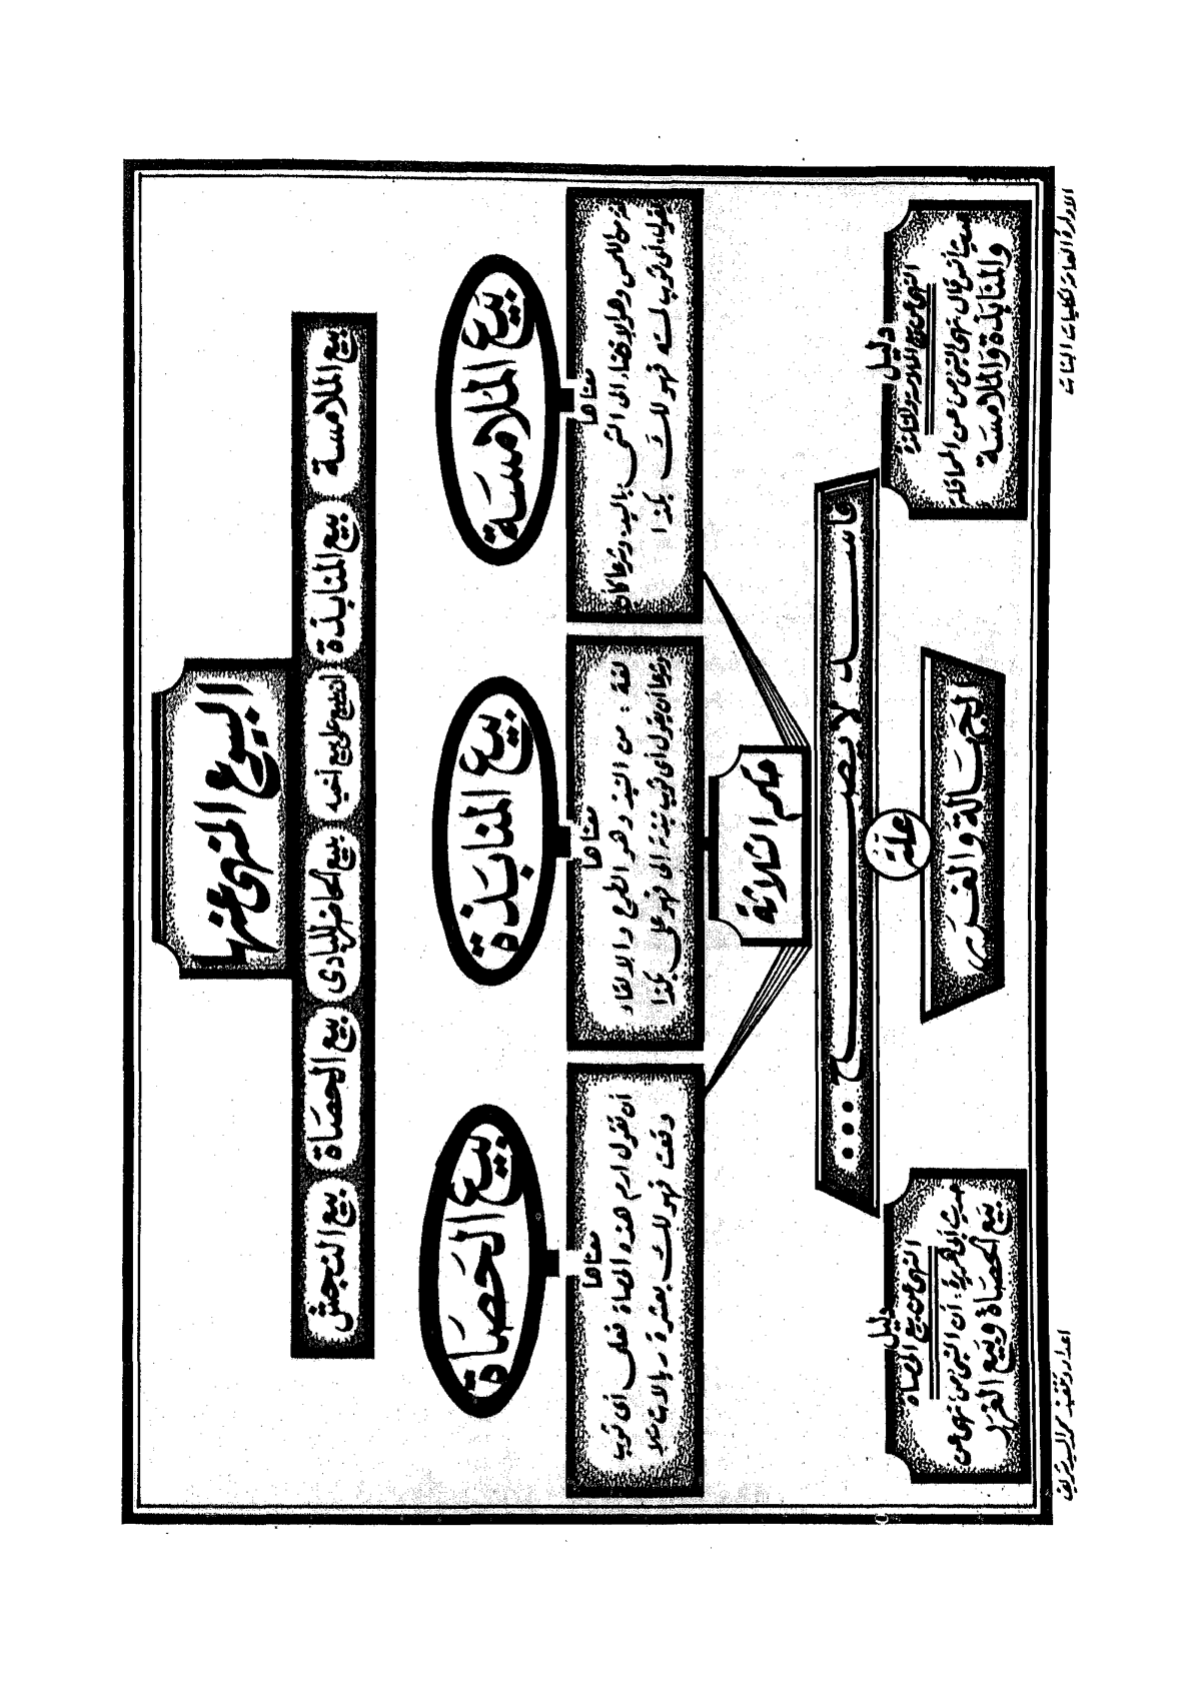 البيوع المنهى عنها
بيع الملامسة
بيع المنابذة
البيع على بيع أخيه
بيع الحاضر للبادى
بيع الحصاة
بيع النجش
بيع الملامسة
معناها
من اللمس وهو الافضاء الى الشى باليد، وشرعا كأن
يقول أى ثوب لمسته فهو لك بكذا
بيع المنابذة
معناها
لغة : من النبذ وهو الطرح والالقاء
وشرعا أن يقول أى ثوب نبذته الى فهو على بكذا
بيع الحصاة
معناها
أن تقول ارم هذه الحصاة فعلى أى ثوب
وقعت فهو لك بعشرة ريالات مثلا
حكم الثلاثة
فاسد لا يصح ...
علة
الجهالة والغرر
دليل
النهى عن بيع الملامسة والمنابذة
حديث أنس قال نهى النبى ص عن المحاقلة
والمنابذة والملامسة
دليل
النهى عن بيع الحصاه
حديث أبى هريرة : أن النبى ص نهى عن
بيع الحصاة وبيع الغرر
الادارة العامة لكليات البنات
اعداد وتنفيذ محمد السيد شريف